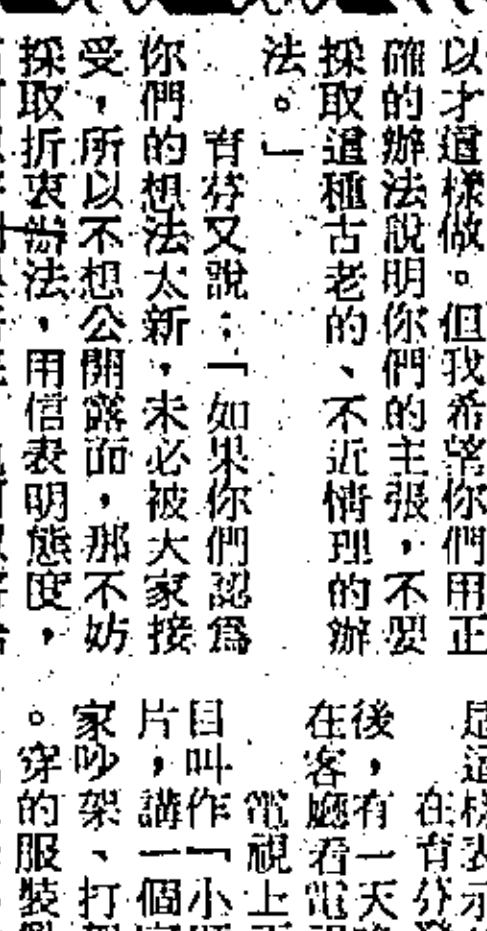 以才這樣做。但我希望你們用正
確的辦法說明你們的主張，不要
採取這種古老的、不近情理的辦
法。」
育芬又說：「如果你們認爲
你們的想法太新，未必被大家接
受，所以不想公開露面，那不妨
採取折衷辦法，用信表明態度，
是這樣表示
在育芬發
後，有一天
在客廳看電
電視上
目叫作「小
片，講一個
家吵架、打
。穿的服裝